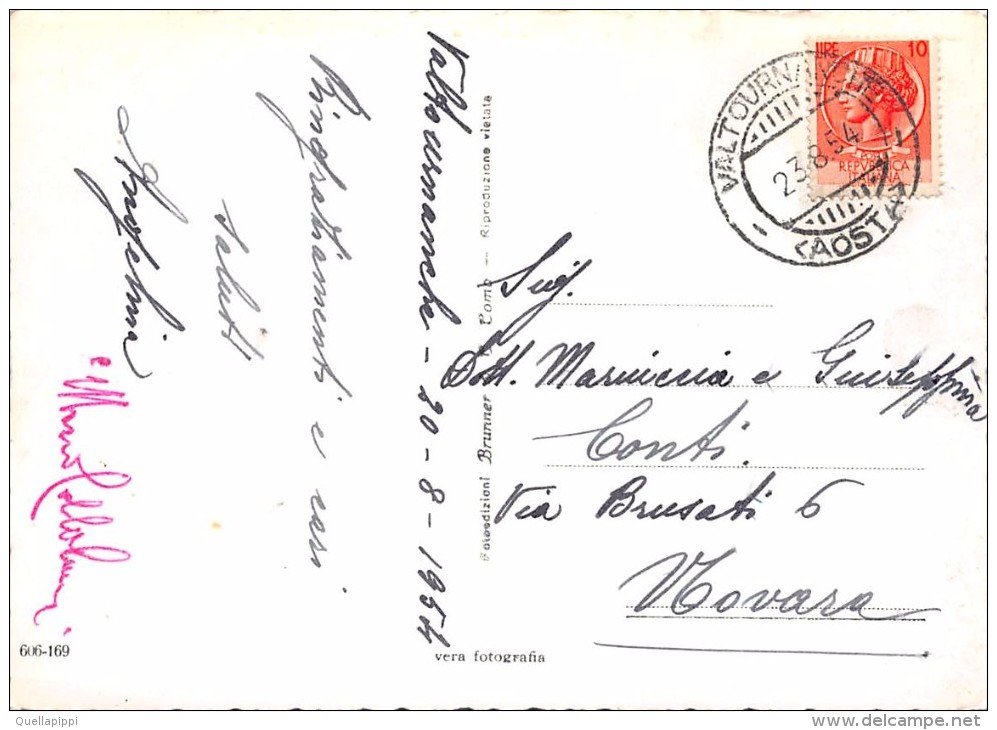 Valtournanche - 20 - 8 - 1954
Ringraziamenti e cari
saluti
Angelini
LIRE 10
REPVBBLICA
ITALIANA
VALTOURNANCHE
23.8.54
(AOSTA)
Sig.
Dott. Mariuccia e Giuseppina
Conti.
Via Brusati 6
Novara
Fotoedizioni Brunner & C. Como — Riproduzione vietata
vera fotografia
606-169
Quellapippi
www.delcampe.net